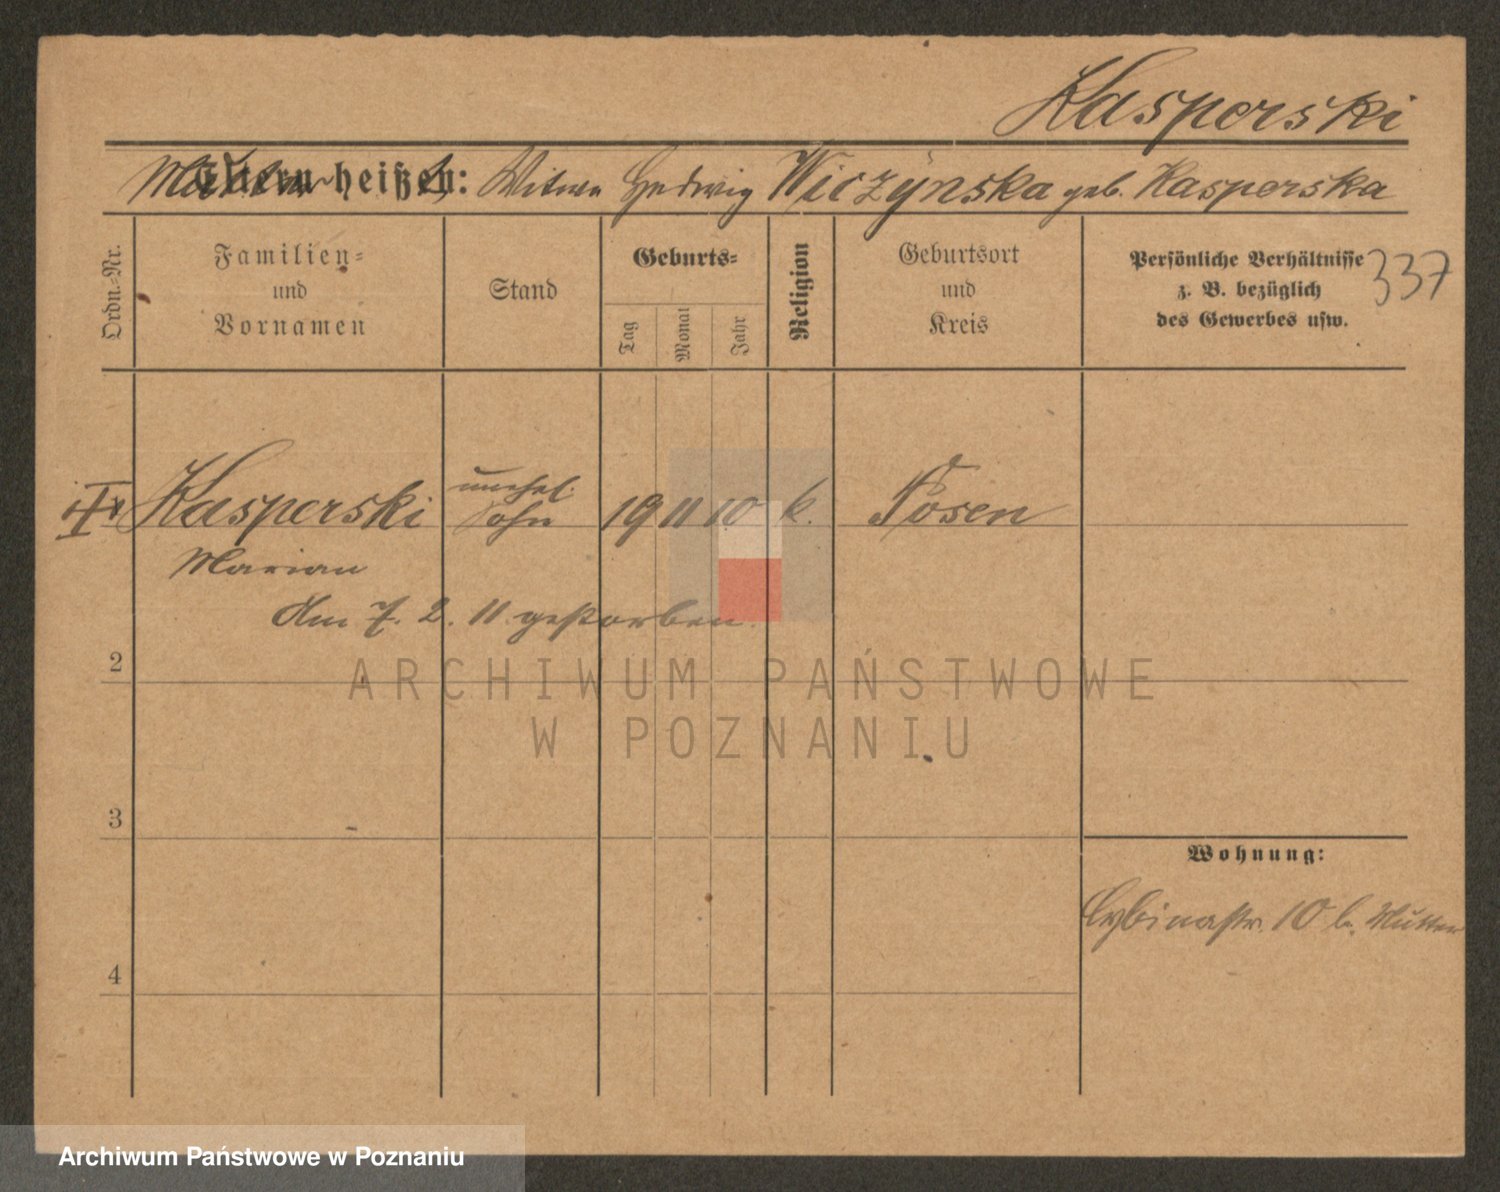 Kasperski
Eltern heißen: Witwe Hedwig Wiczynska geb. Kasperska
Ordn.-Nr.
Familien-
und
Vornamen
Stand
Geburts-
Tag
Monat
Jahr
Religion
Geburtsort
und
Kreis
Persönliche Verhältnisse
z. B. bezüglich
des Gewerbes usw.
337
Kasperski
unehel.
Sohn
19 11 10 k. Posen
Marian
Am 7. 2. 11 gestorben.
2
ARCHIWUM PAŃSTWOWE
W POZNANIU
3
Wohnung:
Cybinastr. 10 b. Mutter
4
Archiwum Państwowe w Poznaniu